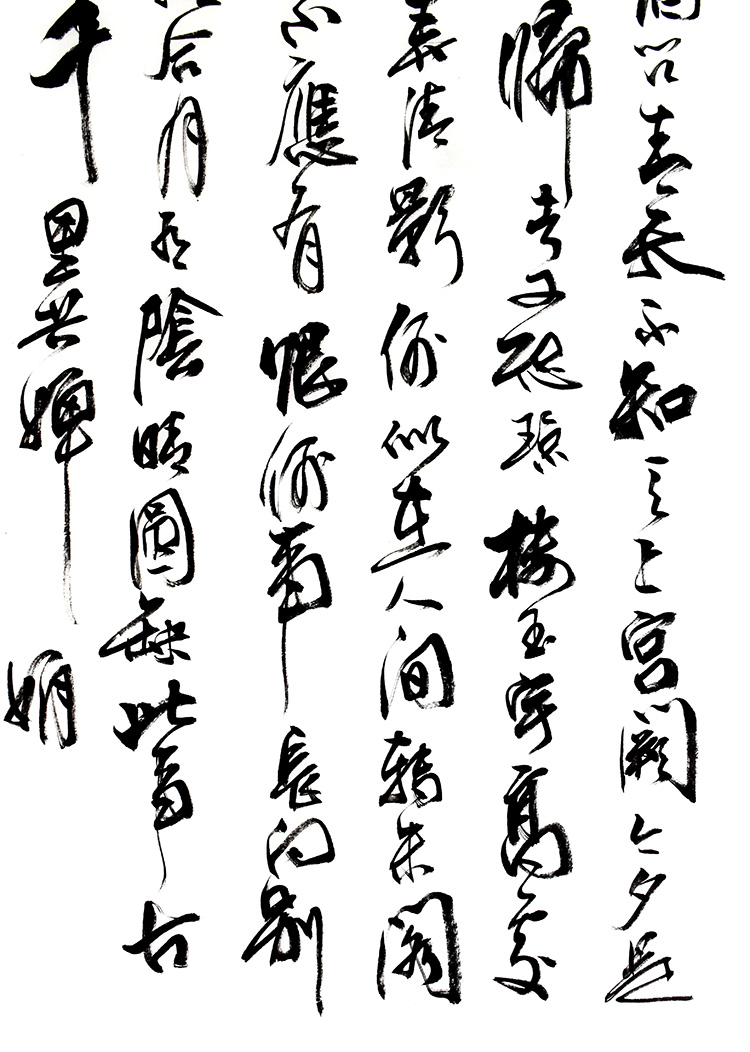 青天不知天上宮闕今夕是
歸去又恐瓊樓玉宇高處
弄清影何似在人間轉朱閣
不應有恨何事長向別
合月有陰晴圓缺此事古
千里共嬋娟